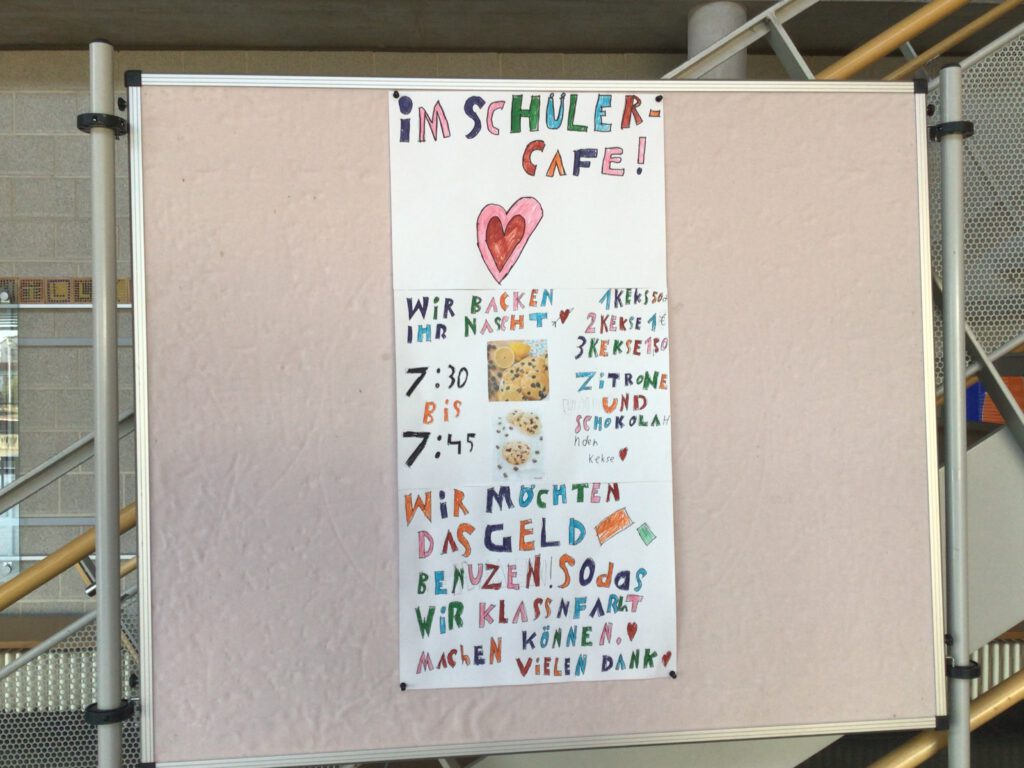 iM SCHÜLER-
CAFE!
WiR BACKEN
IHR NASCHT
7:30
BiS
7:45
1KEKS 50ct
2KEKSE 1€
3KEKSE 1,50
ZiTRONE
UND
SCHOKOLAH
nden
Kekse
WiR MÖCHTEN
DAS GELD
BENUZEN! SOdas
WiR KLASSNFARHT
MACHEN KÖNNEN.
ViELEN DANK